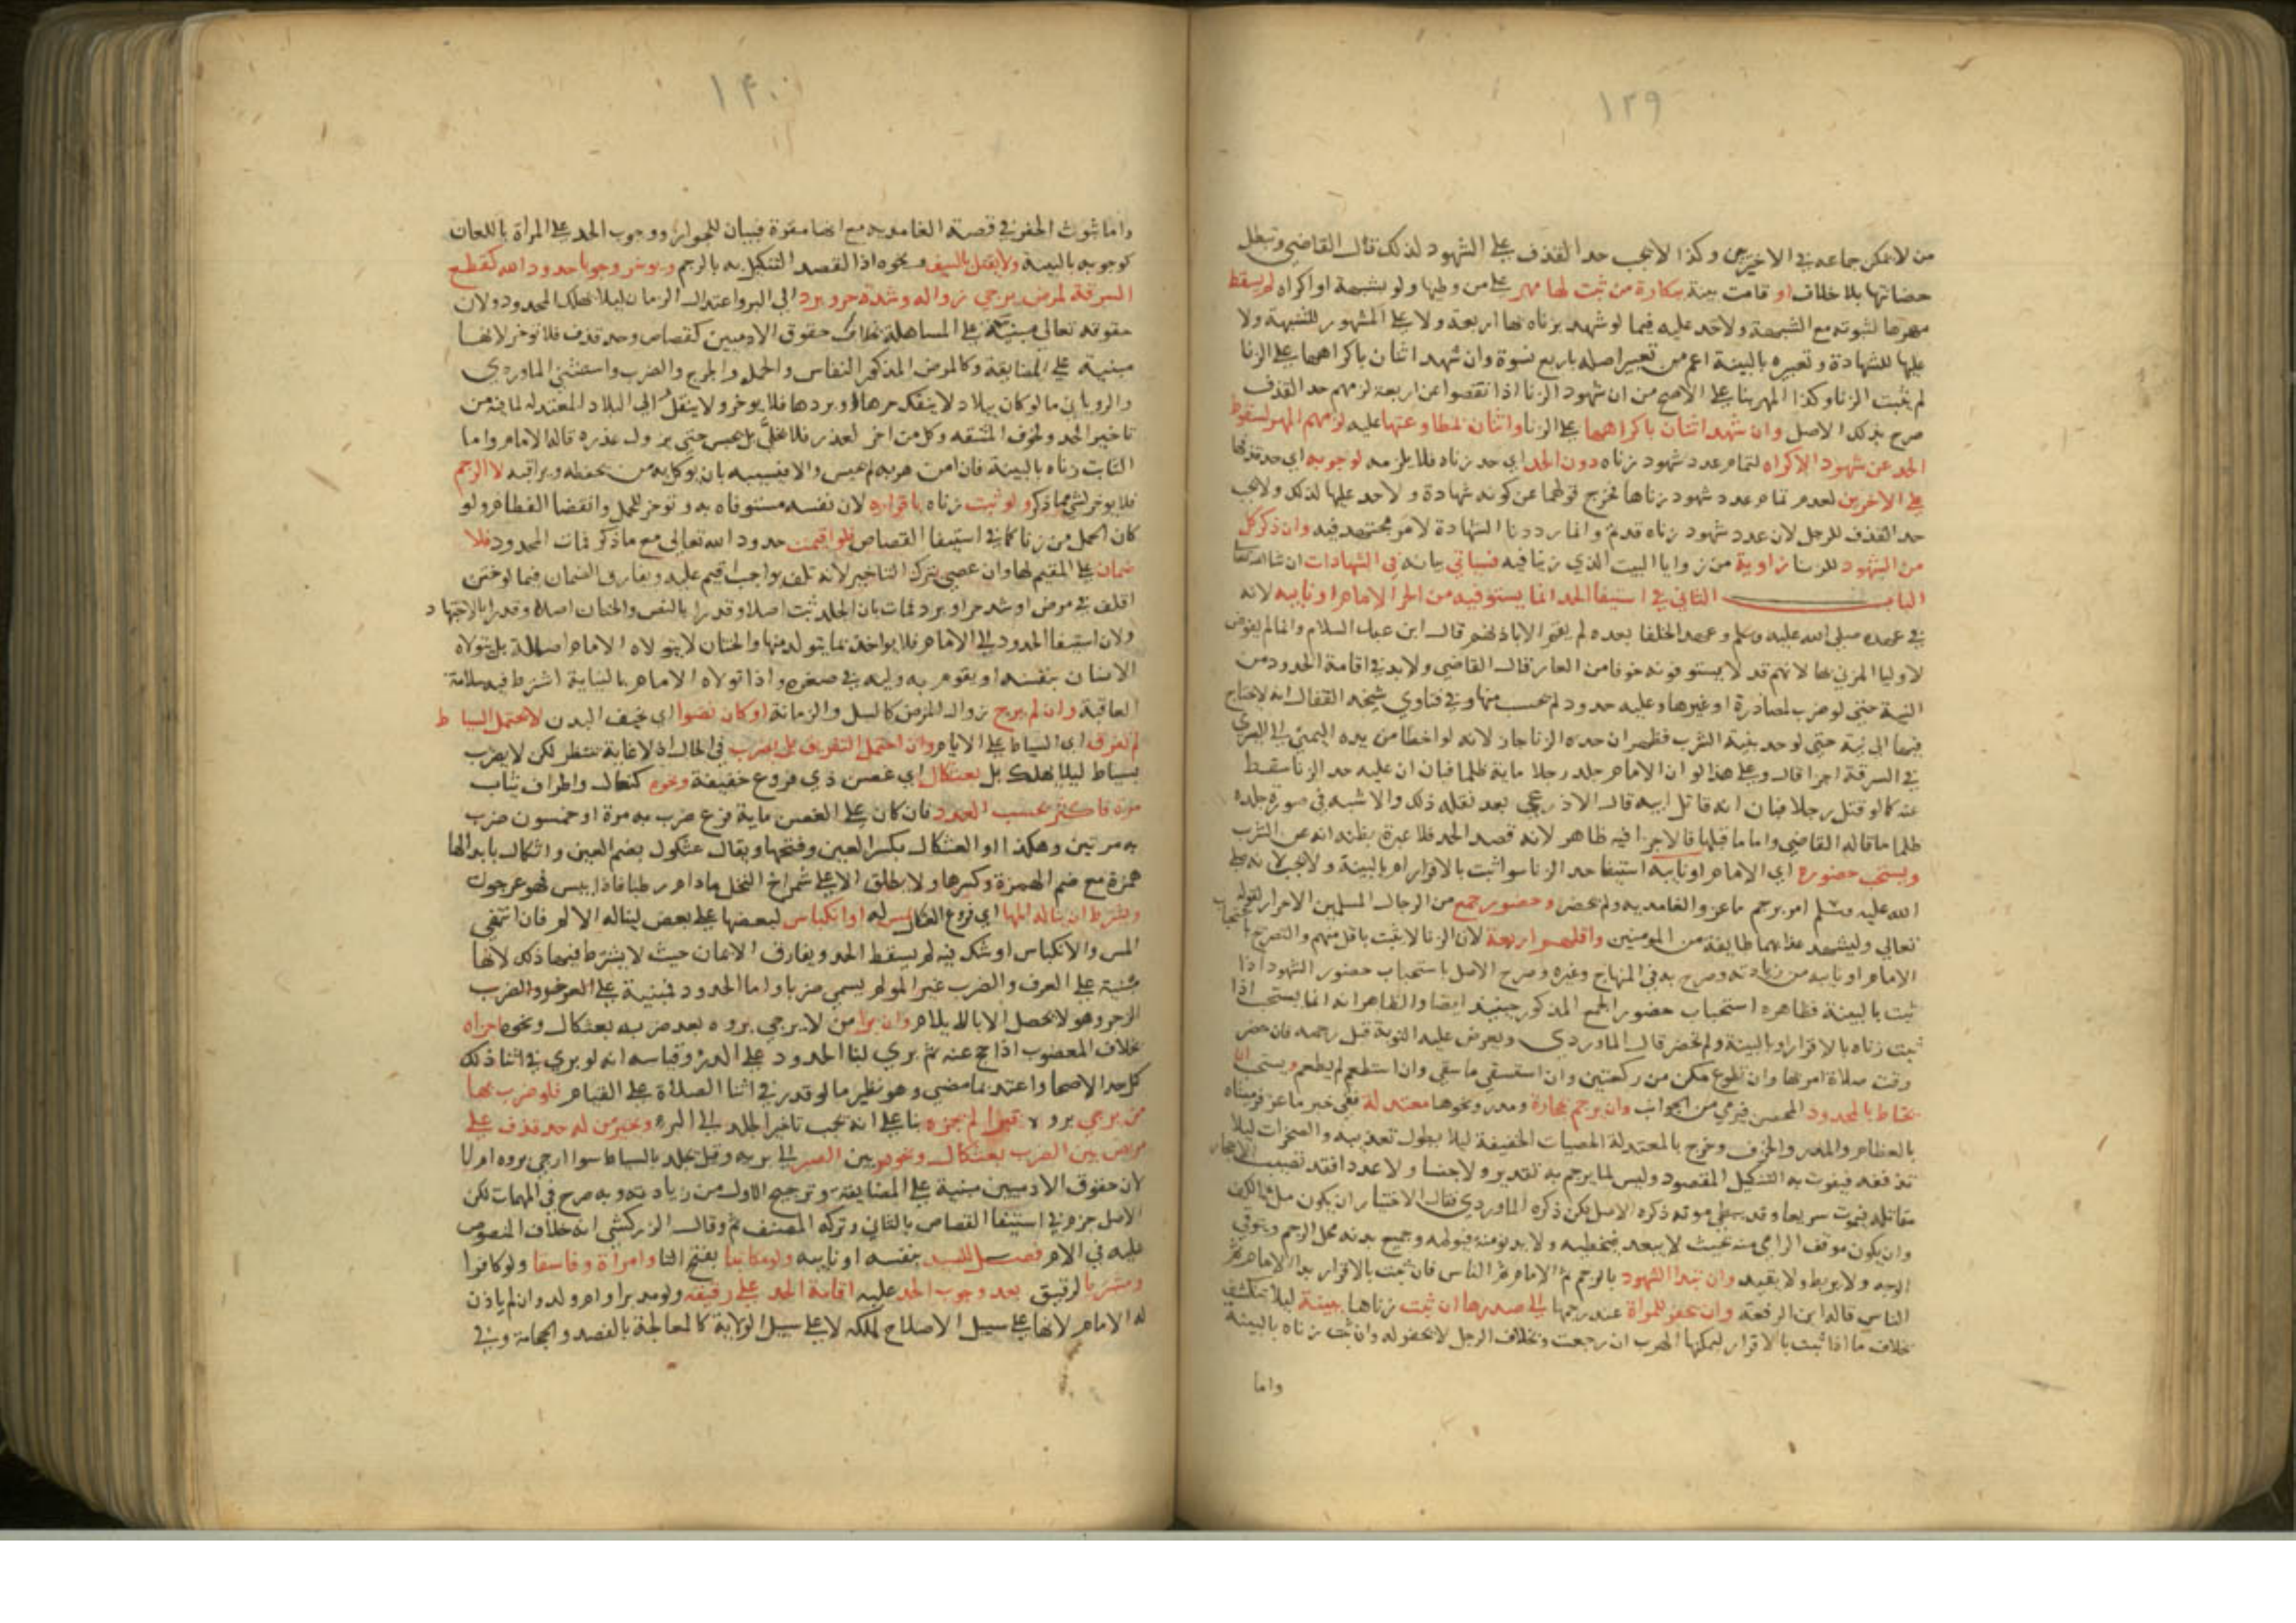 ١٣٩
من لا يمكن جماعه في الاخيرين وكذا لا يجب حد القذف على الشهود لذلك قال القاضي وتبطل
حضانتها بلا خلاف او قامت بينة ببكارة من ثبت لها مهر على من وطيها ولو بشبهة او اكراه لم يسقط
مهرها لثبوته مع الشبهة ولا حد عليه فيما لو شهد بزناه بها اربعة ولا على المشهور للشبهة ولا
عليها للشهادة وتعبيره بالبينة اعم من تعبير اصله باربع نسوة وان شهد اثنان باكراهها على الزنا
لم يثبت الزنا وكذا المهر بنا على الاصح من ان شهود الزنا اذا نقصوا عن اربعة لزمهم حد القذف
صرح بذلك الاصل وان شهد اثنان باكراهها على الزنا واثنان بمطاوعتها عليه لزمهم المهر لسقوط
الحد عن شهود الاكراه لتمام عدد شهود زناه دون الحد اي حد زناه فلا يلزمه لوجوبه اي حد قذفها
على الاخرين لعدم تمام عدد شهود زناها فخرج قولهما عن كونه شهادة ولا حد عليها لذلك ولا يجب
حد القذف للرجل لان عدد شهود زناه قد تم وانما رددنا الشهادة لامر مجتهد فيه وان ذكر كل
من الشهود للزنا زاوية من زوايا البيت الذي زنيا فيه فسياتي بيانه في الشهادات ان شا الله تعالى
الباب الثاني في استيفا الحد انما يستوفيه من الحر الامام او نايبه لانه
في عهده صلى الله عليه وسلم وعهد الخلفا بعده لم يقم الا باذنهم قال ابن عبد السلام وانما لم يفوض
لاوليا المزني بها لانهم قد لا يستوفونه خوفا من العار قال القاضي ولا بد في اقامة الحدود من
النية حتى لو ضرب لمصادرة او غيرها وعليه حدود لم يحسب منها وفي فتاوي شيخه القفال انه لا يحتاج
فيها الى نية حتى لو حد بنية الشرب فظهر ان حده الزنا جاز لانه لو اخطا من يده اليمنى الى اليسرى
في السرقة اجزا قال وعلى هذا لو ان الامام جلد رجلا ماية ظلما فبان ان عليه حد الزنا سقط
عنه كما لو قتل رجلا فبان انه قاتل ابيه قال الاذرعي بعد نقله ذلك والاشبه في صورة جلده
ظلما ما قاله القاضي واما ما قبلها فالاجزا فيه ظاهر لانه قصد الحد فلا عبرة بظنه انه عن الشرب
ويستحب حضوره اي الامام او نايبه استيفا حد الزنا سوا ثبت بالاقرار ام بالبينة ولا يجب لانه صلى
الله عليه وسلم امر برجم ماعز والغامدية ولم يحضر وحضور جمع من الرجال المسلمين الاحرار لقوله
تعالى وليشهد عذابهما طايفة من المومنين واقلهم اربعة لان الزنا لا يثبت باقل منهم والتصريح باستحباب
الامام او نايبه من زيادته وصرح به في المنهاج وغيره وصرح الاصل باستحباب حضور الشهود اذا
ثبت بالبينة فظاهره استحباب حضور الجمع المذكور حينيذ ايضا والظاهر انه انما يستحب اذا
ثبت زناه بالاقرار او بالبينة ولم تحضر قال الماوردي ويعرض عليه التوبة قبل رجمه فان حضر
وقت صلاة امر بها وان تطوع مكن من ركعتين وان استسقي ماسقي وان استطعم لم يطعم ويستحب ان
يحتاط بالمحدود المحصن فيرمي من الجوانب وان يرجم بحجارة ومدر ونحوها معتدلة ففي خبر ماعز فرميناه
بالعظام والمدر والخزف وخرج بالمعتدلة الحصيات الخفيفة ليلا يطول تعذيبه والصخرات ليلا
تذففه فيفوت به التنكيل المقصود وليس لما يرجم به تقدير ولا جنسا ولا عددا فقد تصيب الاحجار
مقاتله فيموت سريعا وقد يبطي موته ذكره الاصل لكن ذكره الماوردي فقال الاختيار ان يكون ملا الكف
وان يكون موقف الرامي منه بحيث لا يبعد فيخطيه ولا يدنو منه فيولمه وجميع بدنه محل الرجم ويتوقى
الوجه ولا يربط ولا يقيد وان تبدا الشهود بالرجم ثم الامام ثم الناس فان ثبت بالاقرار بدا الامام ثم
الناس قاله ابن الرفعة وان يحفر للمراة عند رجمها الى صدرها ان ثبت زناها ببينة ليلا تنكشف
بخلاف ما اذا ثبت بالاقرار ليمكنها الهرب ان رجعت وبخلاف الرجل لا يحفر له وان ثبت زناه بالبينة
واما
١٤٠
واما ثبوت الحفر في قصة الغامدية مع انها مقرة فبيان للجواز ووجوب الحد على المراة باللعان
كوجوبه بالبينة ولا يقتل بالسيف ونحوه اذا القصد التنكيل به بالرجم ويوخر وجوبا حدود الله كقطع
السرقة لمرض يرجي زواله وشدة حر وبرد الى البر واعتدال الزمان ليلا يهلك المحدود ولان
حقوقه تعالى مبنية على المساهلة بخلاف حقوق الادميين كقصاص وحد قذف فلا توخر لانها
مبنية على المضايقة وكالمرض المذكور النفاس والحمل والجرح والضرب واستثنى الماوردي
والروياني ما لو كان ببلاد لا ينفك حرها او بردها فلا يوخر ولا ينقل الى البلاد المعتدلة لما فيه من
تاخير الحد ولخوف المشقة وكل من اخر لعذر فلا يخلى بل يحبس حتى يزول عذره قاله الامام واما
الثابت زناه بالبينة فان امن هربه لم يحبس والا فيسيبه بان يوكل به من يحفظه ويراقبه لا الرجم
فلا يوخر لشي مما ذكر ولو ثبت زناه باقراره لان نفسه مستوفاه به وتوخر للحمل وانقضا الفطام ولو
كان الحمل من زنا كما في استيفا القصاص فلو اقيمت حدود الله تعالى مع ما ذكر فمات المحدود فلا
ضمان على المقيم لها وان عصى بترك التاخير لانه تلف بواجب اقيم عليه ويفارق الضمان فيما لو ختن
اقلف في مرض او شد حر او برد فمات بان الجلد ثبت اصلا وقدرا بالنص والختان اصلا وقدرا بالاجتهاد
ولان استيفا الحدود الى الامام فلا يواخذ بما يتولد منها والختان لا يتولاه الامام اصالة بل يتولاه
الانسان بنفسه او يقوم به وليه في صغره واذا تولاه الامام بالنيابة اشترط فيه سلامة
العاقبة وان لم يرج زوال المرض كالسل والزمانة او كان نضوا اي نحيف البدن لا يحتمل السياط
لم تفرق اي السياط على الايام وان احتمل التفريق بل يضرب في الحال اذ لا غاية تنتظر لكن لا يضرب
بسياط ليلا يهلك بل بعثكال اي غصن ذي فروع خفيفة ونحوه كنعال واطراف ثياب
مرة فاكثر بحسب العدد فان كان على الغصن ماية فرع ضرب به مرة او خمسون ضرب
به مرتين وهكذا والعثكال بكسر العين وفتحها ويقال عثكول بضم العين واثكال بابدالها
همزة مع ضم الهمزة وكسرها ولا يطلق الا على شمراخ النخل مادام رطبا فاذا يبس فهو عرجون
ويشترط ان يناله المها اي فروع العثكال بمس له او انكباس لبعضها على بعض ليناله الالم فان انتفى
المس والانكباس او شك فيه لم يسقط الحد ويفارق الايمان حيث لا يشترط فيها ذلك لانها
مبنية على العرف والضرب غير المولم يسمى ضربا واما الحدود فمبنية على الزجر والضرب
الزجر وهو لا يحصل الا بالايلام وان برا من لا يرجي بروه بعد ضربه بعثكال ونحوه اجزاه
بخلاف المعضوب اذا حج عنه ثم بري لبنا الحدود على الدر وقياسه انه لو بري في اثنا ذلك
كمل حد الاصحا واعتد بما مضى وهو نظير ما لو قدر في اثنا الصلاة على القيام فلو ضرب بها
من يرجي بروه لم يجزه بنا على انه يجب تاخير الجلد الى البر وخير من له حد قذف على
مريض بين الضرب بعثكال ونحوه وبين الصبر الى بريه وقيل يجلد بالسياط سوا ارجي بروه ام لا
لان حقوق الادميين مبنية على المضايقة وترجيح الاول من زيادته وبه صرح في المهمات لكن
الاصل جزم في استيفا القصاص بالثاني وتركه المصنف ثم وقال الزركشي انه خلاف المنصوص
عليه في الام فصل للسيد بنفسه او نايبه ولو مكاتبا بفتح التا وامراة وفاسقا ولو كافرا
ومشتريا لرقيق بعد وجوب الحد عليه اقامة الحد على رقيقه ولو مدبرا وام ولد وان لم ياذن
له الامام لانها على سبيل الاصلاح لملكه لا على سبيل الولاية كالمعالجة بالفصد والحجامة وفي